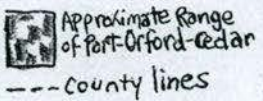 Approximate Range
of Port-Orford-Cedar
---- County lines